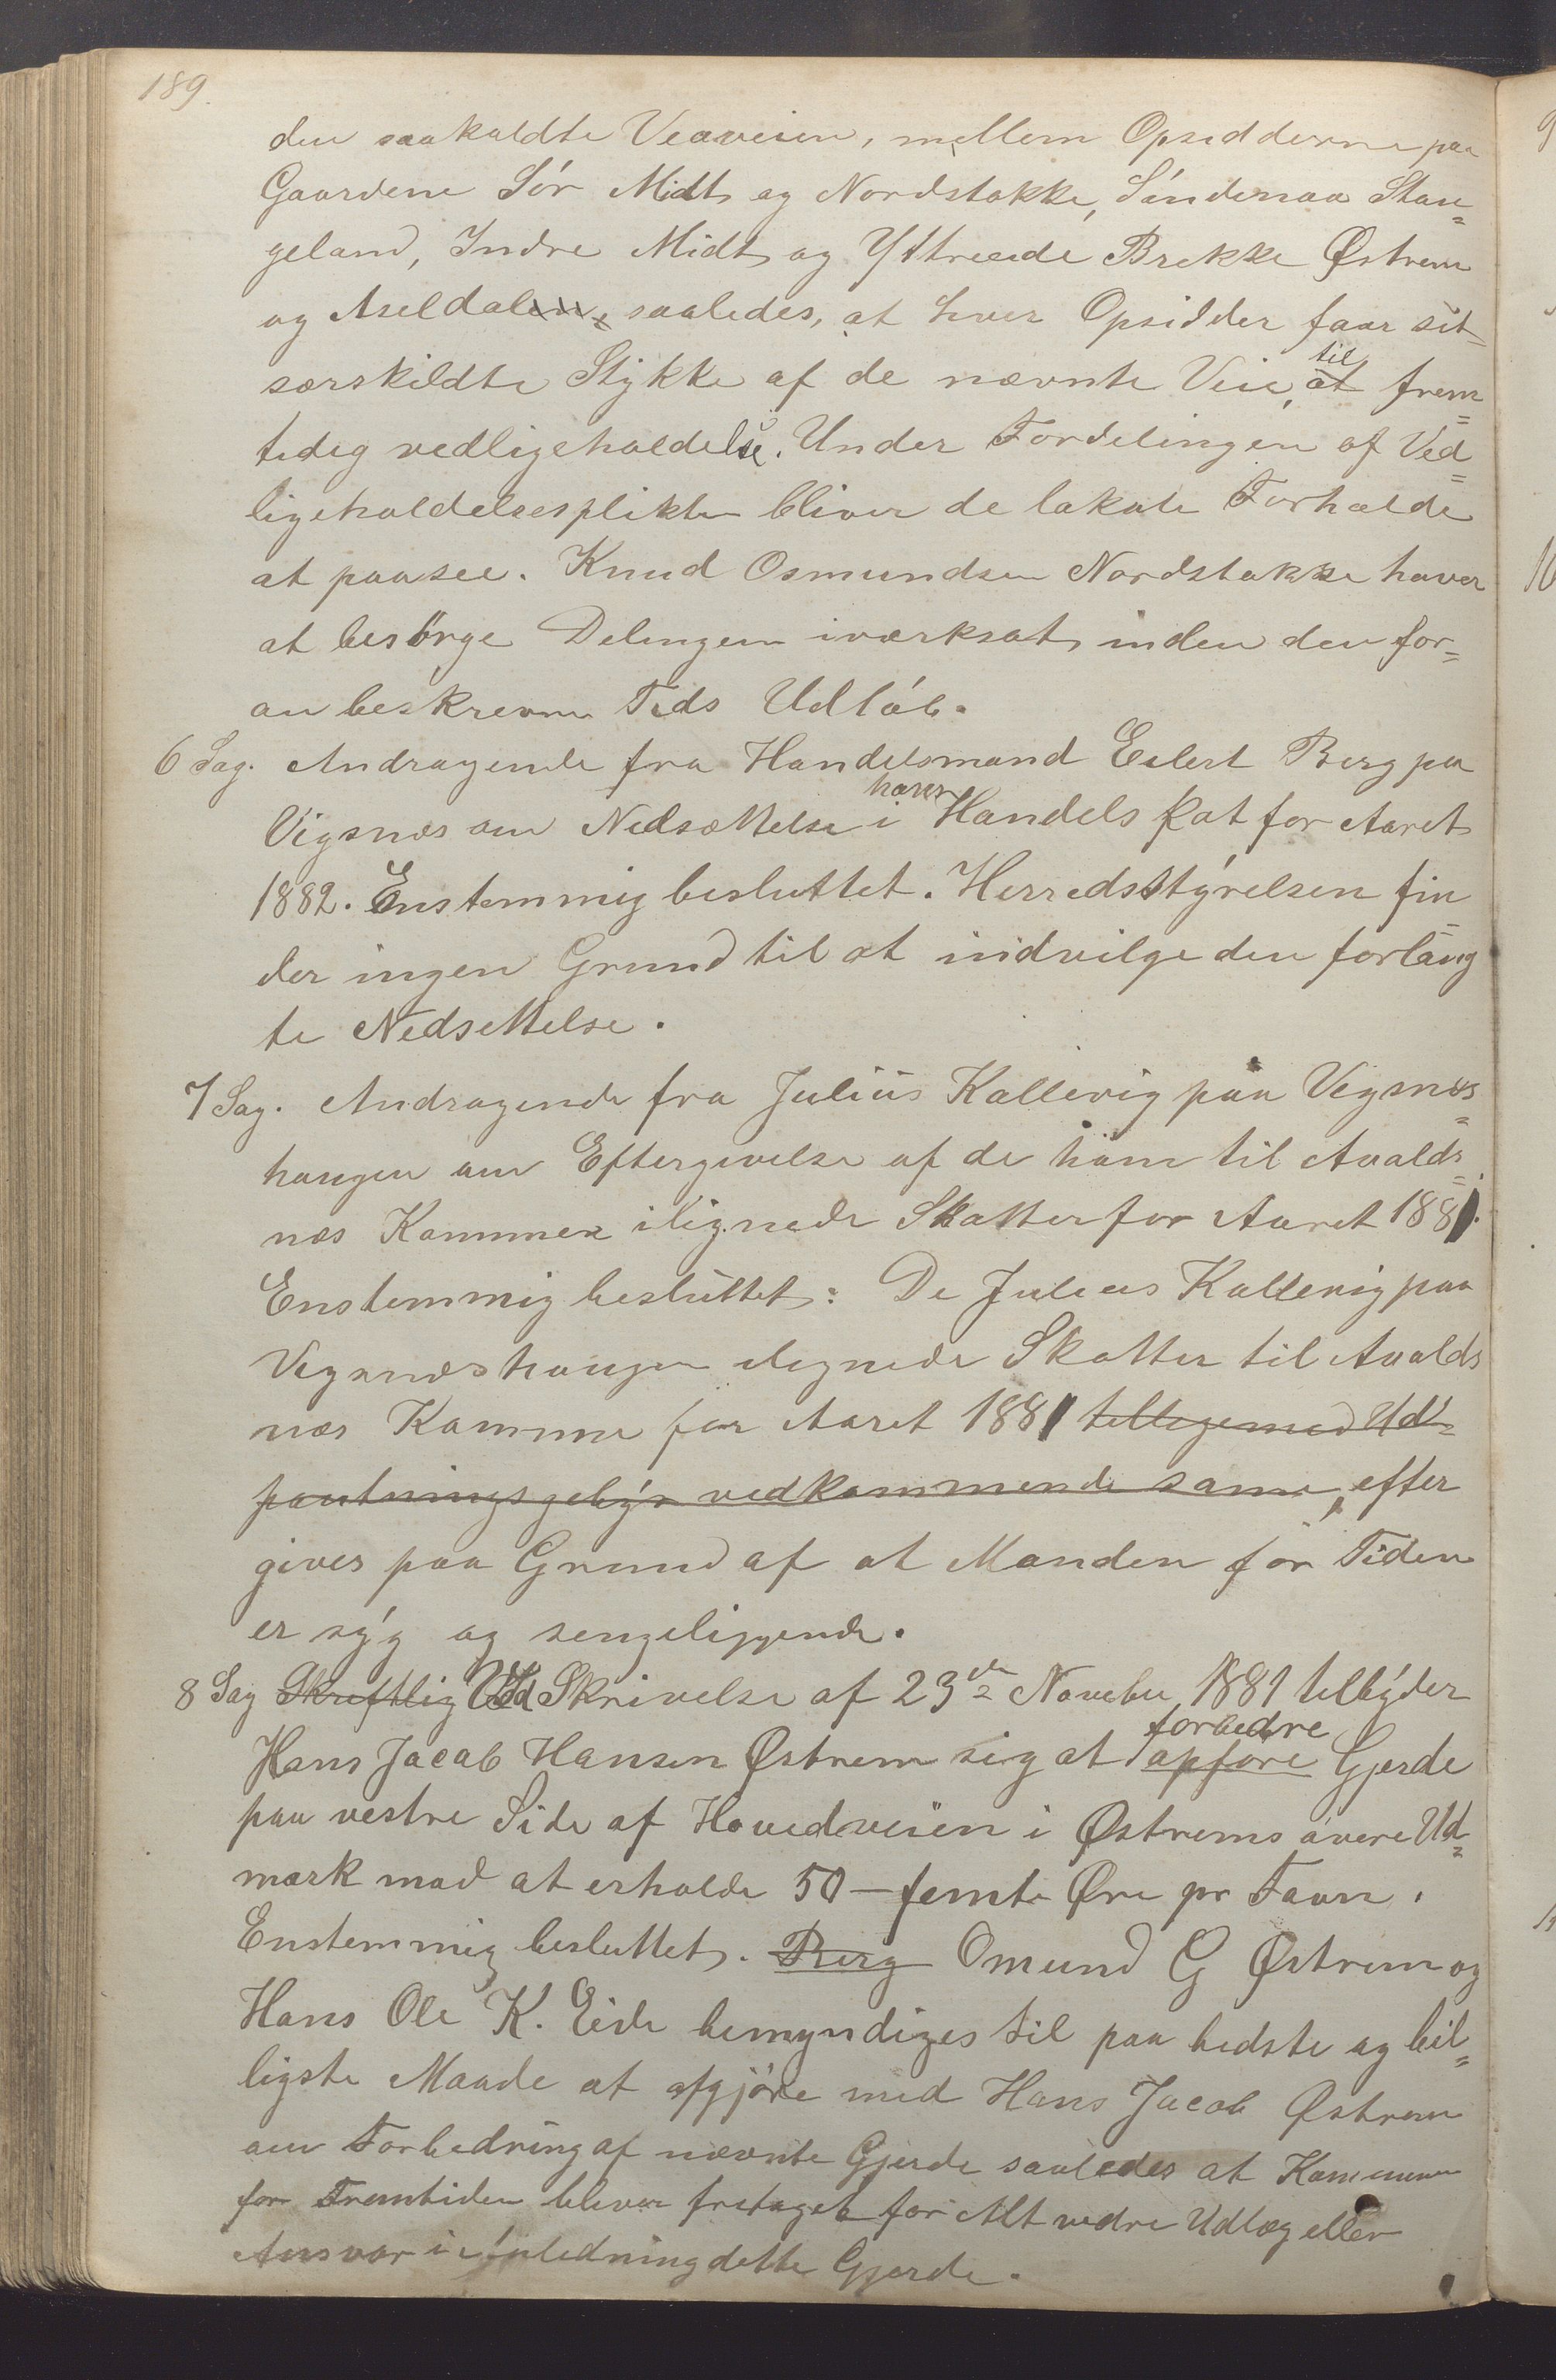 189.
den saakaldte Veaveien, mellem Opsidderne paa
Gaardene Sór Midt og Nordstokke, Sóndenaa Stan=
geland, Indre Midt og Yttreeide Brekke Østrem
og Aseldalen, saaledes, at hver Opsidder faar sit
særskildte Stykke af de nævnte Veie, til at frem=
tidig vedligeholdelse. Under Fordelingen af Ved=
ligeholdelsesplikten bliver de lokale Forholde
at paasee. Knud Osmundsen Nordstokke haver
at besörge Delingen iværksat inden den for=
an beskrevne Tids Udlób.
6 Sag. Andragende fra Handelsmand Eilert Berg paa
Vigsnæs om Nedsættelse i hans Handels skat for Aaret
1882. Enstemmig besluttet. Herredsstyrelsen fin=
der ingen Grund til at indvilge den forlang
te Nedsettelse.
7 Sag. Andragende fra Julius Kallevig paa Vigsnæs=
haugen om Eftergivelse af de ham til Avalds=
næs Kommune ilignede Skatter for Aaret 1881.
Enstemmig besluttet: De Julius Kallevig paa
Vigsnæshaugen ilignede Skatter til Avalds
næs Kommune for Aaret 1881 tilligemed Ud=
pantningsgebyr vedkommende same, efter
gives paa Grund af at Manden for Tiden
er syg og sengeliggende.
8 Sag Skriftlig Ved Skrivelse af 23de November 1881 tilbyder
Hans Jacob Hansen Østrem sig at opføre forbedre Gjerde
paa vestre Side af Hovedveien i Østrems óvere Ud=
mark mod at erholde 50 – femti Øre pr Favn.
Enstemmig besluttet. Berg Omund G Østrem og
Hans Ole K. Eide bemyndiges til paa bedste og bil=
ligste Maade at afgjóre med Hans Jacob Østrem
om Forbedring af nævnte Gjerde saaledes at Kommunen
for Fremtiden bliver fritaget for Alt vidre Udlæg eller
Ansvar i Anledning dette Gjerde.